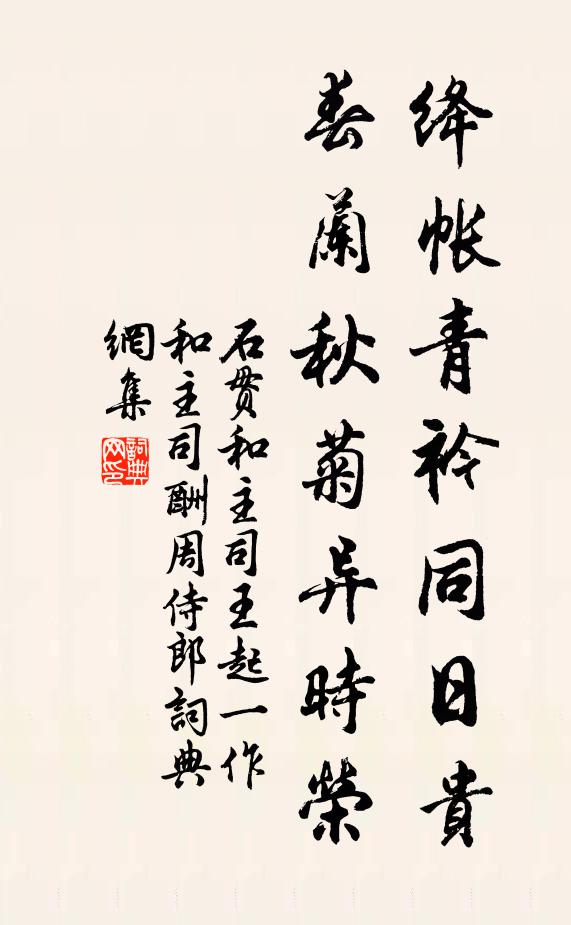 绛帐青衿同日貴
春蘭秋菊异時榮
石贯和主司王起一作
和主司酬周侍郎詞典
網集
詞典网印